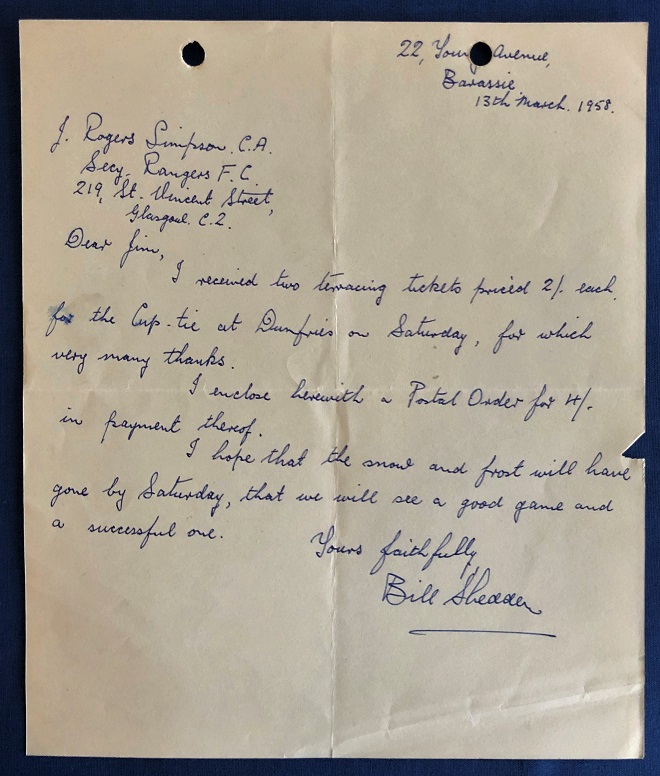 22, Young Avenue,
Barassie
13th March. 1958.
J. Rogers Simpson. C.A.
Secy. Rangers F.C.
219, St. Vincent Street,
Glasgow. C.2.
Dear Jim,
I received two terracing tickets priced 2/. each.
for the Cup-tie at Dumfries on Saturday, for which
very many thanks.
I enclose herewith a Postal Order for 4/-
in payment thereof.
I hope that the snow and frost will have
gone by Saturday, that we will see a good game and
a successful one.
Yours faithfully,
Bill Shedden